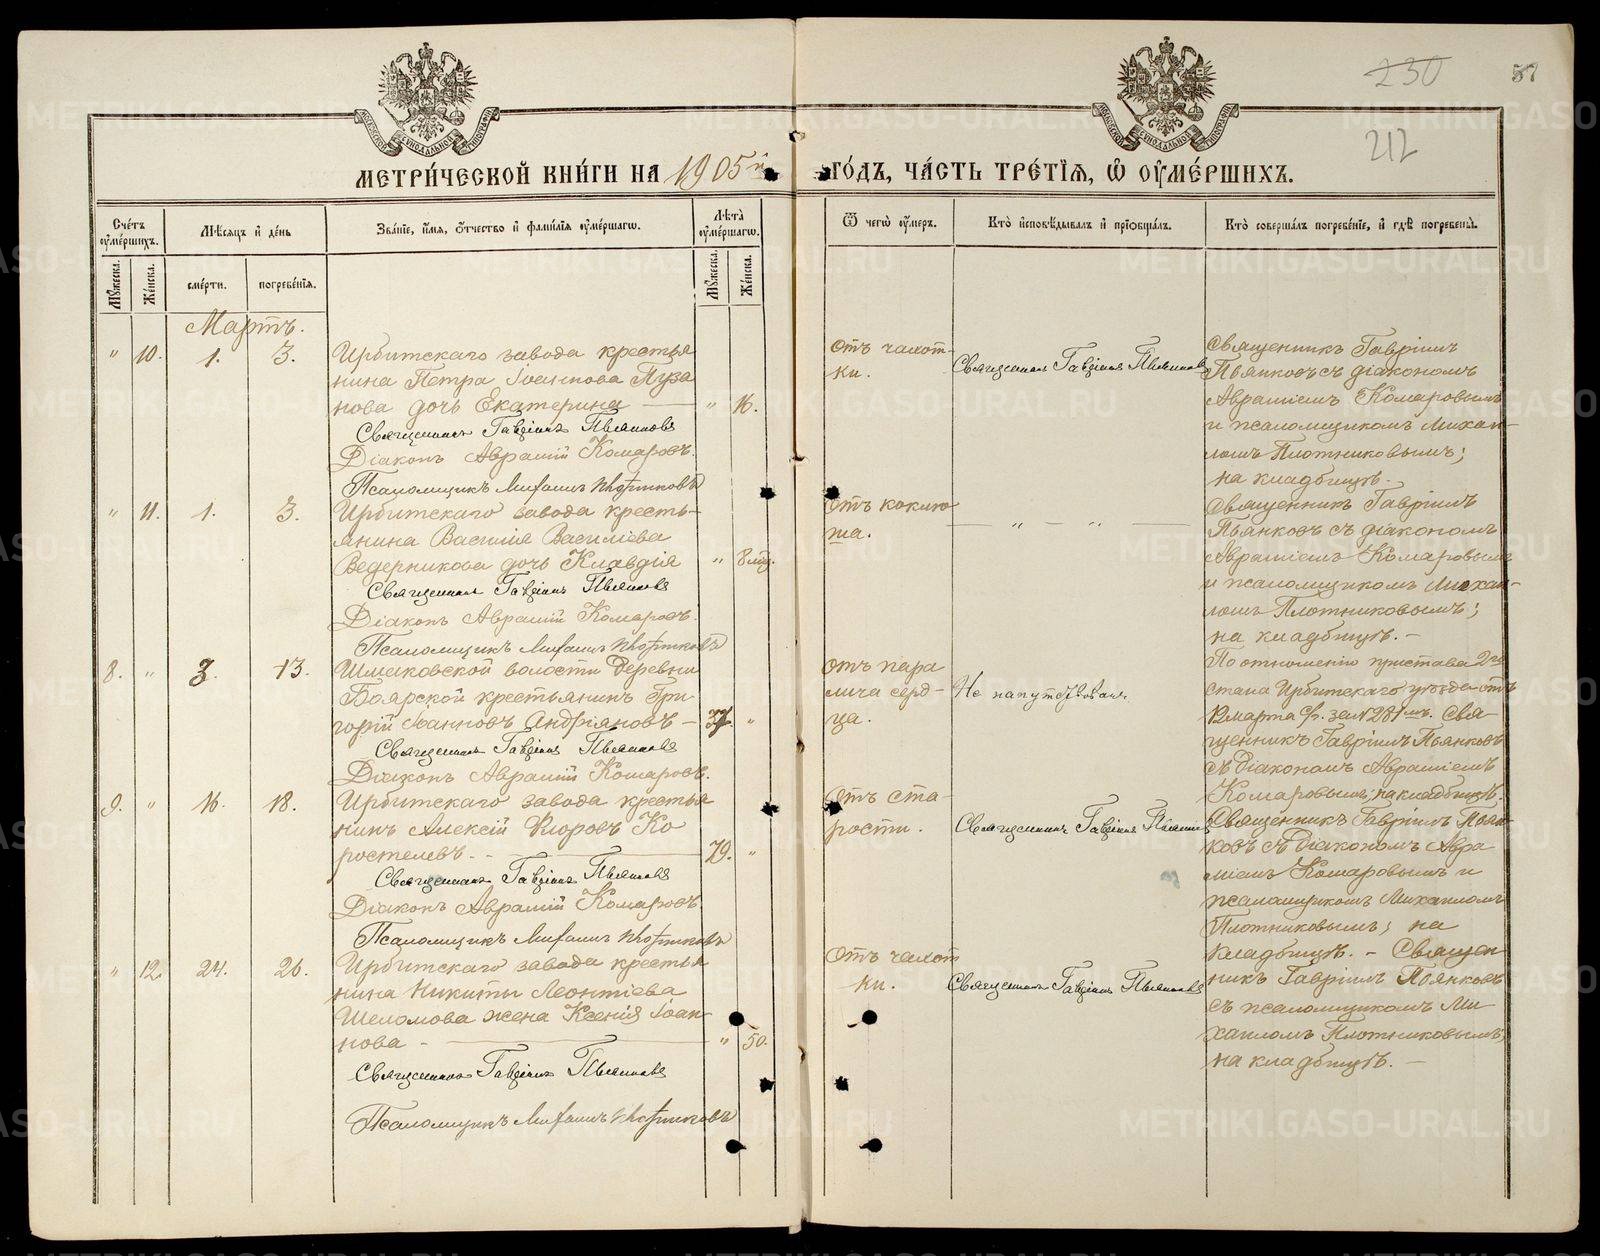 230
51
212
МЕТРИ́ЧЕСКОЙ КНИ́ГИ НА 1905й
ГО́ДЪ, ЧА́СТЬ ТРЕ́ТІѦ, Ѿ ОУМЕ́РШИХЪ.
Сче́тъ оуме́ршихъ.
Мѣ́сяцъ и де́нь
Зва́ніе, и́мя, о́тчество и фами́лія оуме́ршагѡ.
Лѣ́та оуме́ршагѡ.
Ѿ чегѡ̀ оу́меръ.
Кто̀ исповѣ́дывалъ и пріѡбща́лъ.
Кто̀ соверша́лъ погребе́ніе, и гдѣ̀ погребены̀.
Му́жеска.
Же́нска.
сме́рти.
погребе́нія.
Му́жеска.
Же́нска.
Мартъ.
" 10. 1. 3.
Ирбитскаго завода крестья
нина Петра Іоаннова Пуза
нова дочь Екатерина — " 16.
Священникъ Гавріилъ Пьянковъ
Діаконъ Аврамій Комаровъ.
Псаломщикъ Михаилъ Плотниковъ
отъ чахот-
ки.
Священникъ Гавріилъ Пьянковъ
Священникъ Гавріилъ
Пьянковъ съ діакономъ
Авраміемъ Комаровымъ
и псаломщикомъ Михаи-
ломъ Плотниковымъ;
на кладбищѣ.
" 11. 1. 3.
Ирбитскаго завода кресть-
янина Василія Василіева
Ведерникова дочь Клавдія " 8 мц.
Священникъ Гавріилъ Пьянковъ
Діаконъ Аврамій Комаровъ.
Псаломщикъ Михаилъ Плотниковъ
отъ коклю
ша.
— " — " —
Священникъ Гавріилъ
Пьянковъ съ діакономъ
Авраміемъ Комаровымъ
и псаломщикомъ Михаи-
ломъ Плотниковымъ;
на кладбищѣ. —
8. " 3. 13.
Шмаковской волости деревни
Боярской крестьянинъ Гри
горій Іоанновъ Андріяновъ — 37. "
Священникъ Гавріилъ Пьянковъ
Діаконъ Аврамій Комаровъ.
отъ пара
лича серд-
ца.
Не напутствованъ.
По отношенію пристава 2го
стана Ирбитскаго уѣзда отъ
12 марта с/г. за № 281мъ. Свя
щенникъ Гавріилъ Пьянковъ
съ діакономъ Авраміемъ
Комаровымъ; на кладбищѣ.
9. " 16. 18.
Ирбитскаго завода крестья
нинъ Алексій Ѳеодоровъ Ко
ростелевъ. — 79. "
Священникъ Гавріилъ Пьянковъ
Діаконъ Аврамій Комаровъ.
Псаломщикъ Михаилъ Плотниковъ
Отъ ста-
рости.
Священникъ Гавріилъ Пьянковъ
Священникъ Гавріилъ Пьян-
ковъ съ діакономъ Авра
міемъ Комаровымъ и
псаломщикомъ Михаиломъ
Плотниковымъ; на
кладбищѣ. —
" 12. 24. 26.
Ирбитскаго завода крестья
нина Никиты Леонтіева
Шеломова жена Ксенія Іоан-
нова — " 50.
Священникъ Гавріилъ Пьянковъ
Псаломщикъ Михаилъ Плотниковъ
Отъ чахот
ки.
Священникъ Гавріилъ Пьянковъ
Священ
никъ Гавріилъ Пьянковъ
съ псаломщикомъ Ми
хаиломъ Плотниковымъ;
на кладбищѣ. —
METRIKI.GASO-URAL.RU